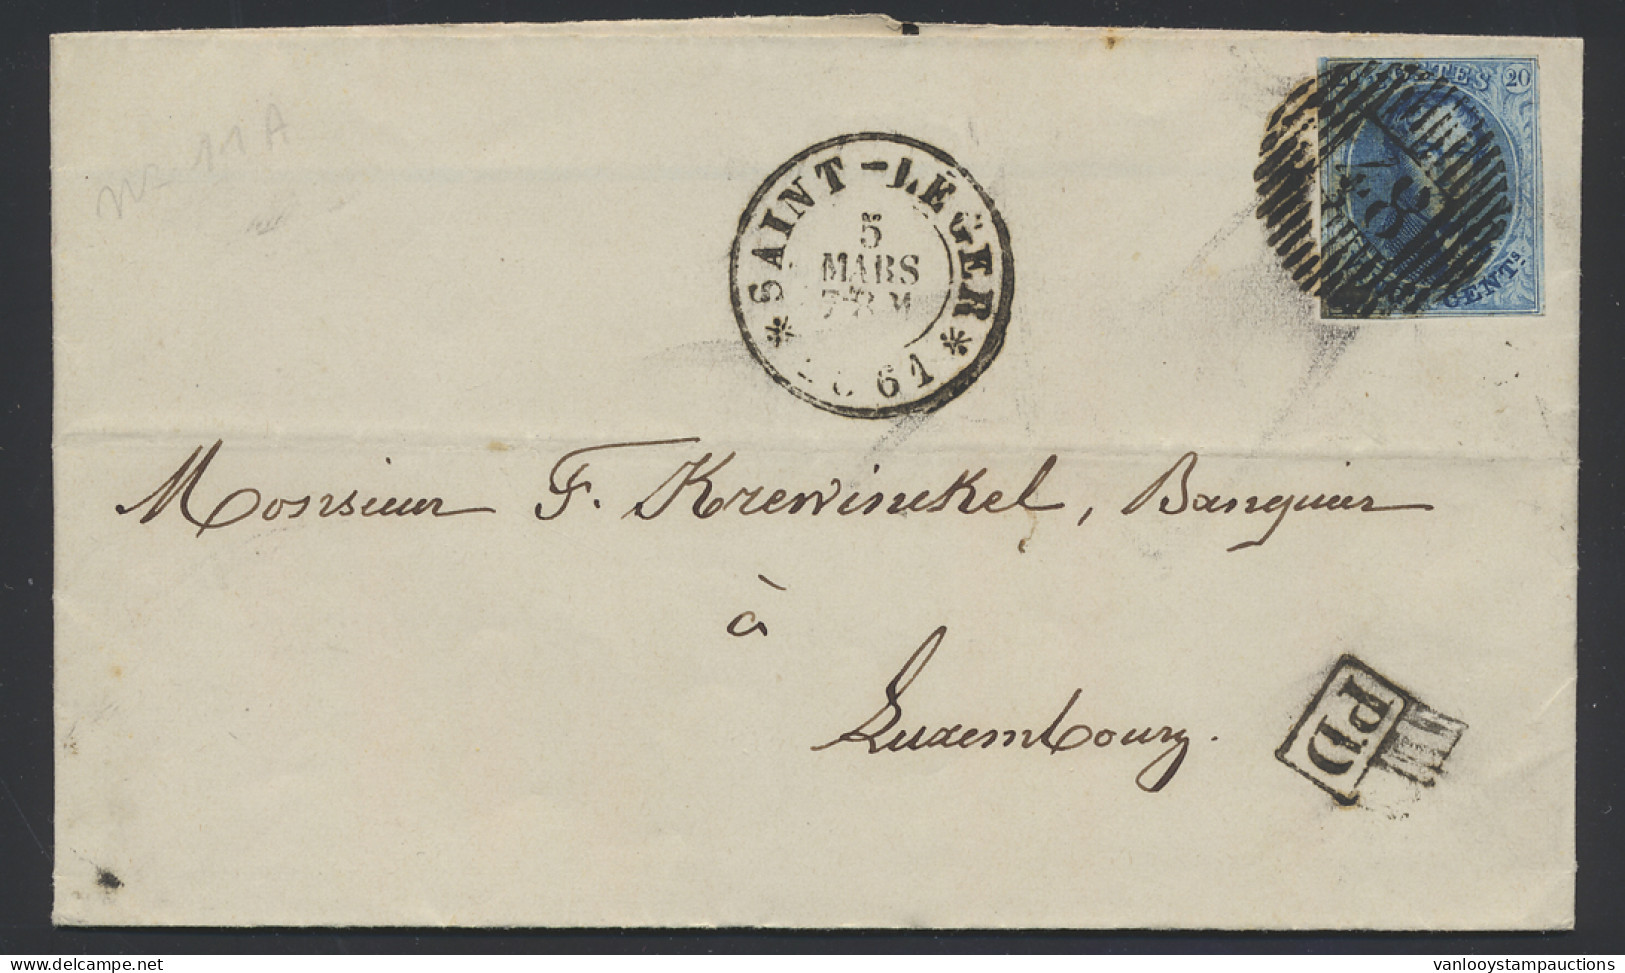 No 11A
POSTES 20
CENTS.
SAINT-LEGER
5
MARS
7-8 M
61
Monsieur F. Krewinckel, Banquier
à
Luxembourg.
PD
https://www.delcampe.net
vanlooystampauctions